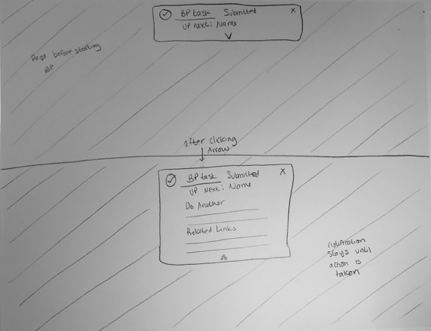 BP task Submitted X
UP Next: Name
before starting
BP
after clicking
Arrow
BP task Submitted X
UP Next: Name
Do Another
Related Links
stays until
action is
taken